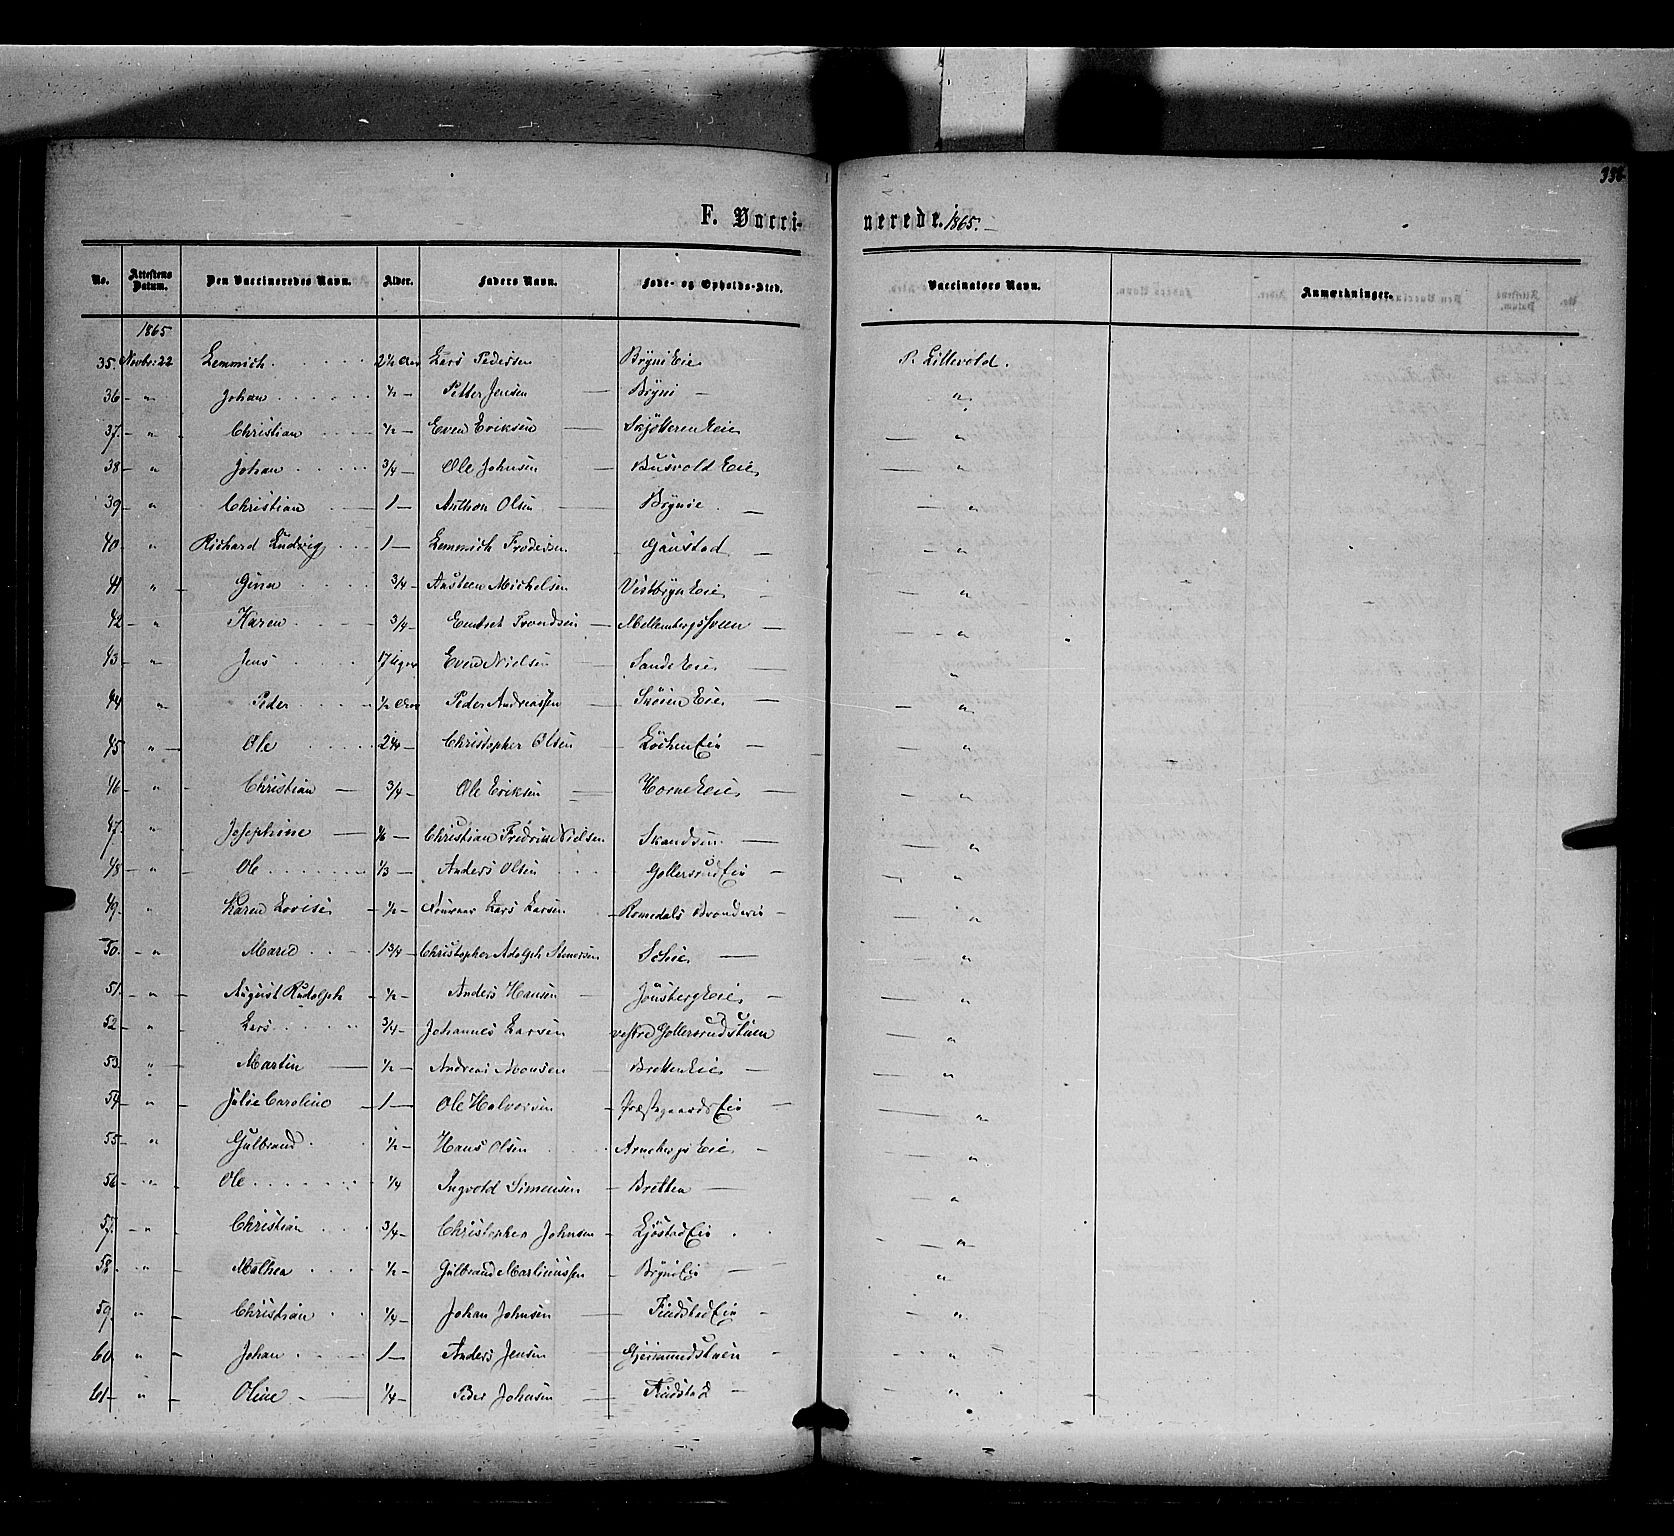 336
F. Vacci- nerede. 1865.
No. Attestens Datum. Den Vaccineredes Navn. Alder. Faders Navn. Føde- og Opholds-Sted. Vaccinators Navn. Anmærkninger.
1865
35. Novbr: 22 Lemmich 2½ Aar Lars Pedersen Bryni Eie P. Lillevold.
36 - " Johan ½ - Petter Jensen - Bryni - "
37. - " - Christian ½ - Even Eriksen - Skjötteren Eie - "
38 - " Johan ¾ - Ole Johnsen - Busvold Eie - "
39 - " Christian - 1 - Anthon Olsen - Brynie - - "
40 " - Richard Ludvig 1 - Lemmich - Gaustad - - "
41 " - Gina ¾ - Austeen Michelsen Vestbryn Eie - - "
42 - " - Karen ¾ - - - "
43 - " Jens 17 Uger Even Nielsen Sande Eie "
44 " Peder ½ Aar Peder Andreassen - Skören Eie - - "
45 " - Ole Christopher Olsen - - "
46 " - Christian - ¾ - Ole Eriksen - Horne Eie - - "
47. " - Josephine - - Christian Fredrik Nielsen Skandsen - - "
48 - " - Ole ⅓ - Anders Olsen Gollersrud Eie - - "
49. " - Karen Lovise - ½ - Lars Larsen - Romedals "
50. - " Maren 1¾ - Christopher Adolph Simensen - "
51. - " - August Rudolph - ½ - Anders Hansen - Jönsberg Eie - - "
52 - " - Lars ¾ - Johannes Larsen vestre Gollersrudstuen - "
53. " - Martin - ½ - Andreas Monsen - Bretten Eie - - "
54 - " - Julie Caroline - 1 - Ole Halvorsen - Præstegaards Eie - - "
55 - " Gulbrand ½ - Hans Olsen - Arneberg Eie - - "
56 - " - Ole ¼ Ingvold Simensen - Bretten - - "
57. - " Christian ¾ - Christopher Johnsen - Ljöstad Eie - "
58. " - Mathea ½ - Gulbrand Martinussen - Bryni Eie - "
59. " - Christian ¼ - Johan Johnsen - Finstad Eie - - "
60 " - Johan 1 - Anders Jensen - Gjeismundstuen - - "
61 - " - Oline - ¼ - Peder Johnsen - Finstad - - "